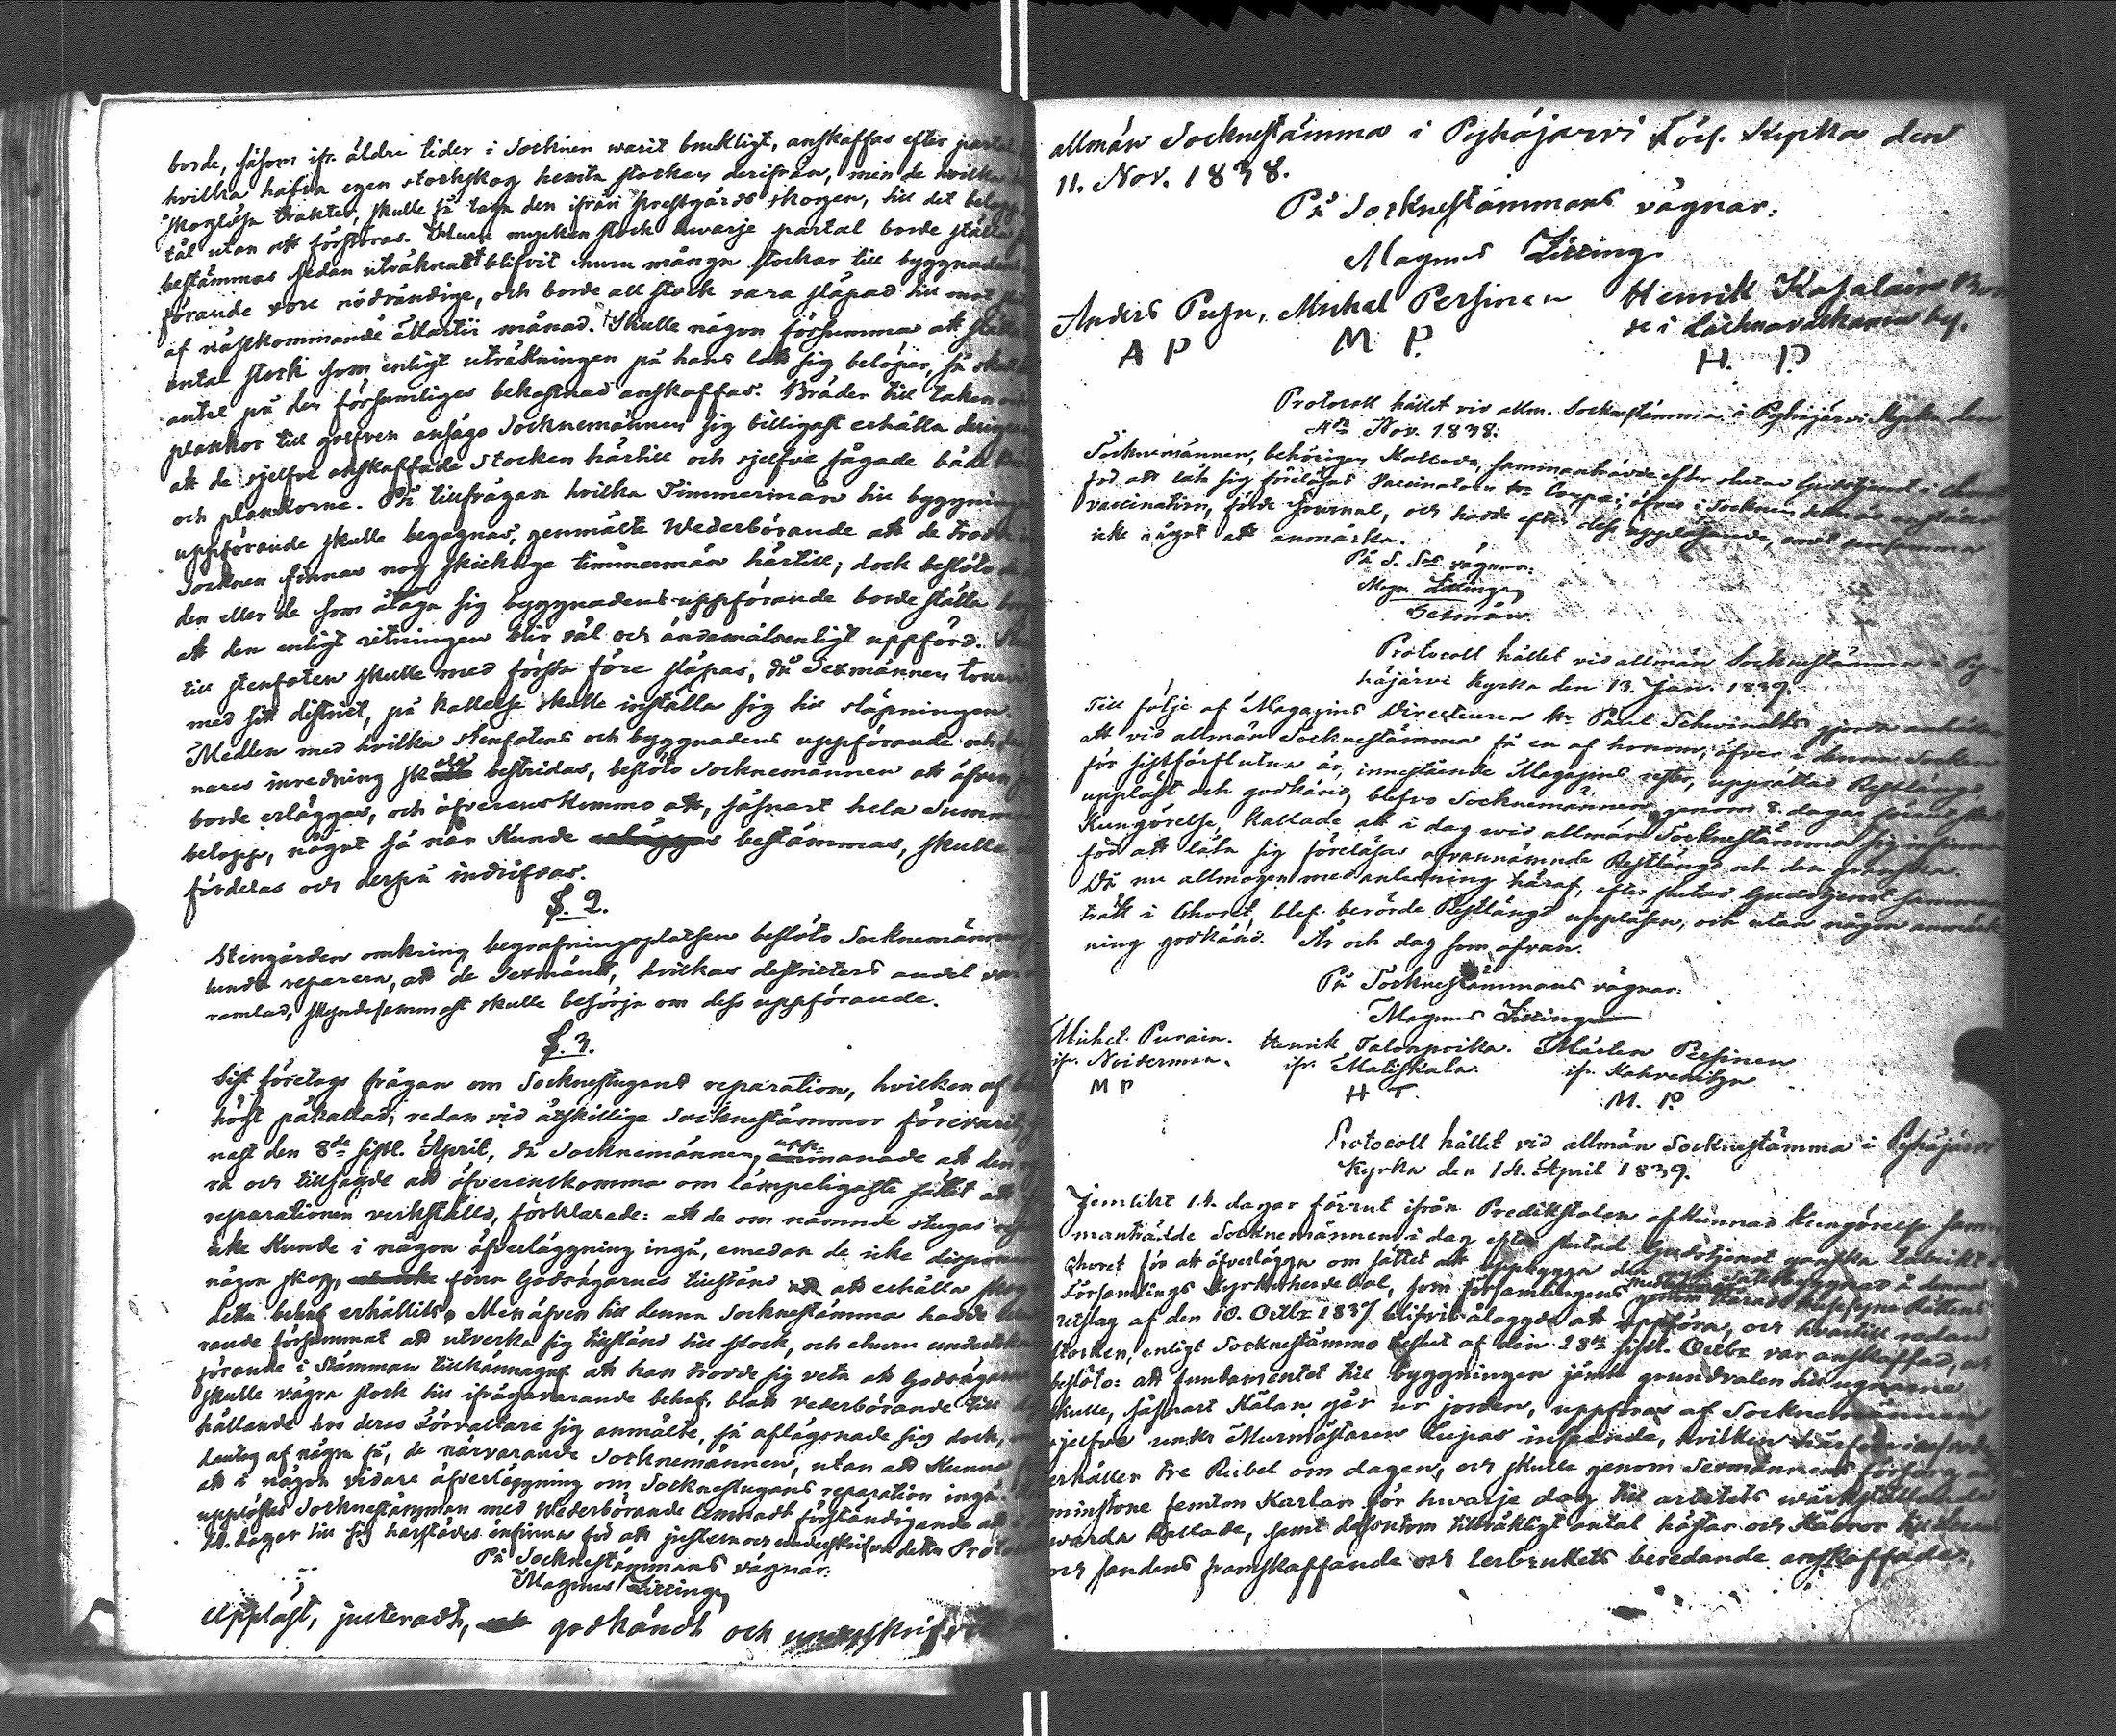 borde, såsom ifr. äldre tider i Socknen warit brukligt, anskaffas efter
hvilka hafva egen stockskog hemta stocken derifrån, men de hvilka
skoglösa trakter, skulle få taga den ifrån Prestgårds skogen, till det belopp
tål utan att förstöras. Huru mycken stock hwarje partal borde ställa
bestämmas sedan uträknadt blifvit huru många stockar till byggnadens
förande vore nödvändige, och borde all stock vara släpad till
af nästkommande Martii månad. Skulle någon försumma att
antal stock som enligt uträkningen på hans lott sig belöper, så
antal på den försumliges bekostnad anskaffas. Bräder till taken
plankor till golfven ansågo Socknemännen sig billigast erhålla
att de sjelfve anskaffade stocken härtill och sjelfve sågade både
och plankorne. På tillfrågan hvilka Timmermän till
uppförande skulle begagnas, genmälte Wederbörande att de
Socknen finnas nog skicklige timmermän härtill; dock beslöto
den eller de som åtaga sig byggnadens uppförande borde ställa
att den enligt ritningen blir väl och ändamålsenligt uppförd.
till stenfoten skulle med första före släpas, då Sexmännen
med sitt district, på kallelse skulle inställa sig till släpningen.
Medlen med hvilka stenfotens och byggnadens uppförande och
nares inredning skola bestridas, beslöto Socknemännen att äfven
borde erläggas, och öfverenskommo att, såsnart hela Summans
belopp, något så när kunde erläggas bestämmas, skulle
fördelas och derpå indrifvas.
§. 2.
Stengården omkring begrafningsplatsen beslöto Socknemännen
lunda reparera, att de Sexmän, hvilkas districters andel var
ramlad, skyndesammast skulle besörja om dess uppförande.
§. 3.
Sist företogs frågan om Socknestugans reparation, hvilken af
högst påkallad, redan vid åtskillige Socknestämmor förevarit,
nast den 8de sistl. April, då Socknemännen uppmanade att
ra och tillsagde att öfverenskomma om lämpeligaste sättet att
reparationen verkställd, förklarade: att de om nämnde stugas
icke kunde i någon öfverläggning ingå, emedan de icke disponera
någon skog, förrn Godsägarnes tillstånd att erhålla skog
detta behof erhållits. Men äfven till denna Socknestämma hade
rande försummat att utverka sig tillstånd till stock, och churu
förande i Stämman tillkännagaf att han trodde sig veta att Godsägarne
skulle vägra stock till ifrågavarande behof, blott vederbörande till
hållande hos deras Förvaltare sig anmälte, så aflägsnade sig dock,
dantag af några få, de närvarande Socknemännen, utan att kunna
att i någon vidare öfverläggning om Socknestugans reparation ingå.
upplöstes Socknestämman med Wederbörande lemnadt förständigande att
14. dagar till sig härstädes infinna för att justera och underskrifva detta Protocoll
På Socknestämmans vägnar.
Magnus Lilling
Uppläst, justeradt, godkändt och underskrifvit
allmän Socknestämma i Pyhäjärvi Förs. Kyrka den
11. Nov. 1838.
På Socknestämmans vägnar.
Magnus Lilling
Anders Pusu, Michel Persinen Henrik
A P M P. H. P.
Protocoll hållet vid allm. Socknestämma i Pyhäjärvi Kyrka den
Nov. 1838.
Socknemännen, behörigen kallade, sammanträdde efter slutad Gudstjenst i
för att låta sig föreläsas Vaccinatorn Hr i Socknen
vaccination, förde Journal, och hade efter dess uppläsande,
icke något att anmärka.
På S. Sns vägnar.
Magn. Lilling
Sexmän.
Protocoll hållet vid allmän Socknestämma i Py-
häjärvi Kyrka den 13. Jan. 1839.
Till följe af Magazins Directeuren Hr Paul Schwindts gjorde anhållan
att vid allmän Socknestämma få en af honom, öfver i denna Socken
för sistförflutna år, innestående Magazins rester, upprättad Restlängd
uppläst och godkänd, blefvo Socknemännen genom 8. dagar förut
Kungörelse kallade att i dag wid allmän Socknestämma sig infinna
för att låta sig föreläsas ofvannämnde Restlängd och den granska.
Då nu allmogen med anledning häraf, efter slutad Gudstjenst samman-
trädt i Choret, blef berörde Restlängd uppläsen, och utan någon anmärk-
ning godkänd. År och dag som ofvan.
På Socknestämmans vägnar.
Magnus Lilling
Michel Purain. Henrik Talonpoika. Mårten Persinen
ifr. Noiderman. ifr. Matiskala. ifr.
M P H T. M. P.
Protocoll hållet vid allmän Socknestämma i Pyhäjärvi
Kyrka den 14. April 1839.
Jemlikt 14. dagar förrut ifrån Predikstolen afkunnad Kungörelse samm-
manträdde Socknemännen i dag efter slutad Gudstjenst ganska talrikt i
Choret för att öfverlägga om sättet att uppbygga den
Församlings Kyrkoherde Bol, som Församlingens
utslag af den 10. Octbr 1837 blifvit ålagde att uppföra, och hvartill redan
stocken, enligt Socknestämmo beslut af den 28de sistl. Octbr var anskaffad, och
beslöto: att fundamentet till byggningen jämte grundvalen till ugnarne
skulle, såsnart Kälan går ur jorden, uppföras af Socknemännen
sjelfve under Murmästaren Lupas inseende, hvilken
erhåller tre Rubel om dagen, och skulle genom Sexmännens försorg
minstone femton Karlar för hwarje dag till arbetets wärkställande
warda kallade, samt dessutom tillräkligt antal hästar och kärror till
och sandens framskaffande och lerbrukets beredande anskaffade.